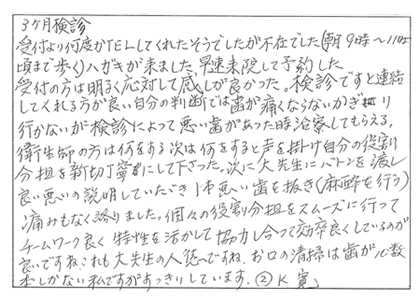 3ヶ月検診
受付より何度かTELしてくれたそうでしたが不在でした(朝9時〜11時
頃まで歩く)ハガキが来ました、早速来院して予約した
受付の方は明るく応対して感じが良かった。検診ですと連絡
してくれる方が良い自分の判断では歯が痛くならないかぎり
行かないが検診によって悪い歯があった時治療してもらえる。
衛生師の方は何をする次は何をすると声を掛け自分の役割
分担を親切丁寧にして下さった。次に大先生にバトンを渡し
良い悪いの説明していただき1本悪い歯を抜き(麻酔を行う)
痛みもなく終りました。個々の役割分担をスムーズに行って
チームワーク良く特性を活かして協力し合って効率良くしているのが
良いですね、これも大先生の人徳ですね。お口の清掃は歯が
本しかない私ですがすっきりしています。② K